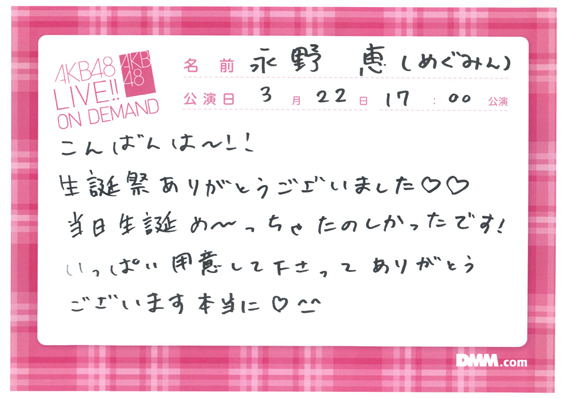 AKB48
LIVE!!
ON DEMAND
AKB
48
名前 永野 恵 (めぐみん)
公演日 3月22日 17:00 公演
こんばんは〜!!
生誕祭ありがとうございました♡♡
当日生誕め〜っちゃたのしかったです!
いっぱい用意して下さってありがとう
ございます本当に♡^^
DMM.com